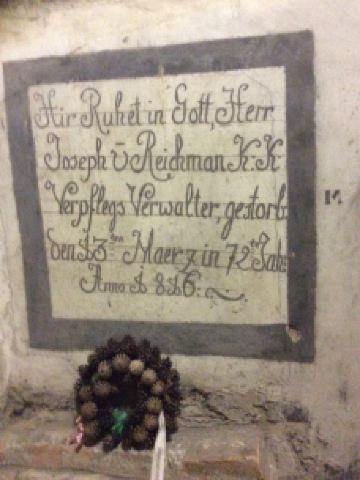 Hir Ruhet in Gott, Herr
Joseph v Reichman K. K
Verpflegs Verwalter, gestorb
den 13ten Maerz in 72 Jah
Anno 1816.